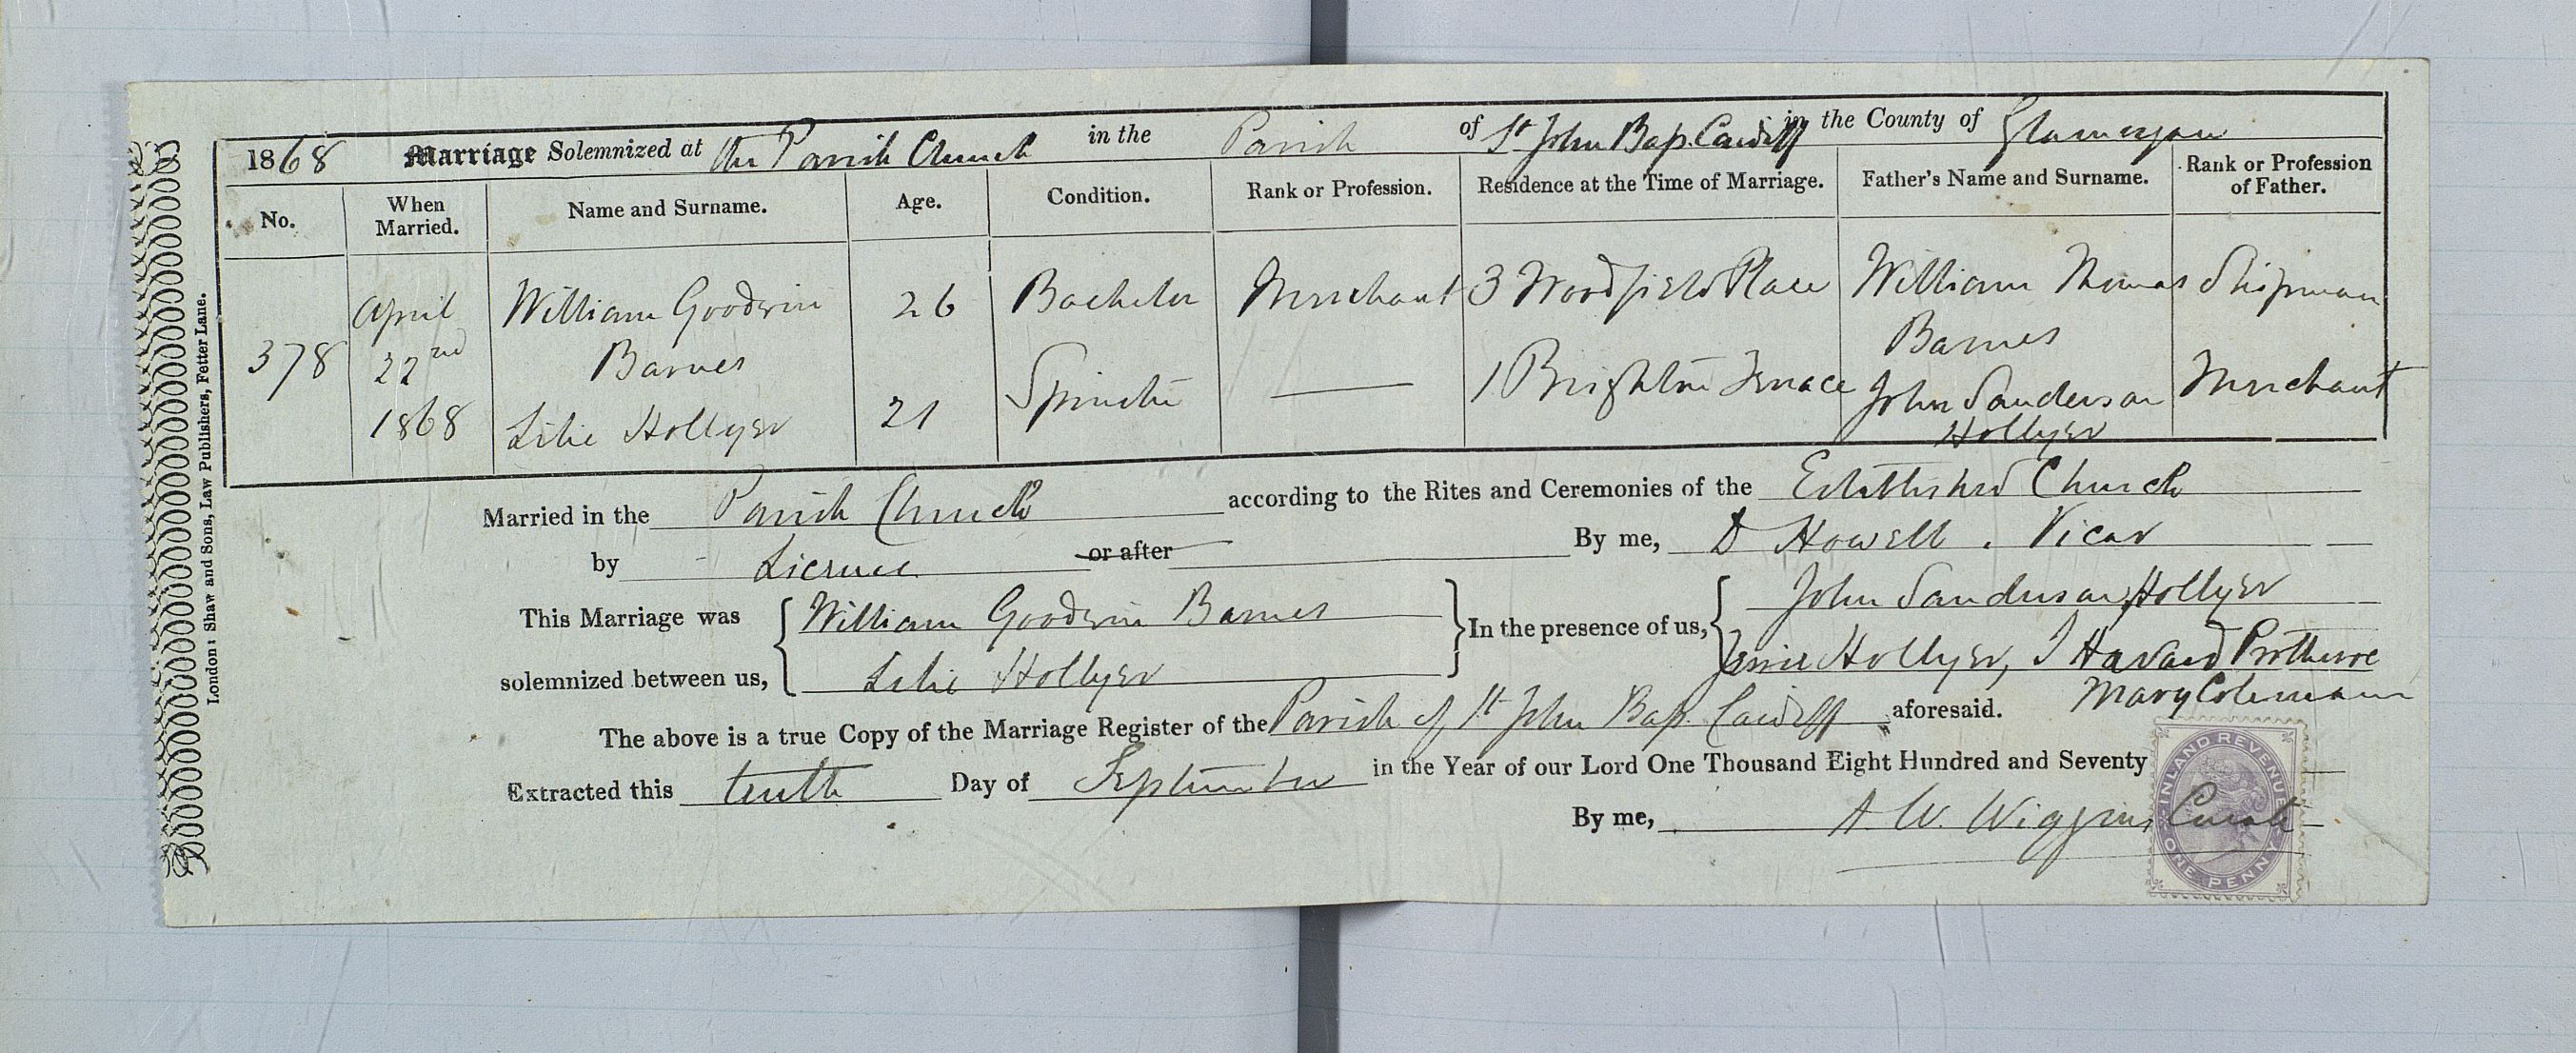 1868 Marriage Solemnized at the Parish Church in the Parish of St John Bap. Cardiff in the County of Glamorgan
No. When Married. Name and Surname. Age. Condition. Rank or Profession. Residence at the Time of Marriage. Father's Name and Surname. Rank or Profession of Father.
378 April 22nd 1868 William Goodwin Barnes 26 Bachelor Merchant 3 Woodfield Place William Thomas Barnes Shipman
Lilie Hollyer 21 Spinster — 1 Brighton Terrace John Sanderson Hollyer Merchant
Married in the Parish Church according to the Rites and Ceremonies of the Established Church
by Licence or after By me, D Howell. Vicar
This Marriage was solemnized between us, William Goodwin Barnes
Lilie Hollyer
In the presence of us, John Sanderson Hollyer
Jessie Hollyer, J Havard Protheroe
Mary Colemann
The above is a true Copy of the Marriage Register of the Parish of St John Bap. Cardiff aforesaid.
Extracted this tenth Day of September in the Year of our Lord One Thousand Eight Hundred and Seventy
By me, A. W. Wiggins, Curate
INLAND REVENUE
ONE PENNY
London: Shaw and Sons, Law Publishers, Fetter Lane.